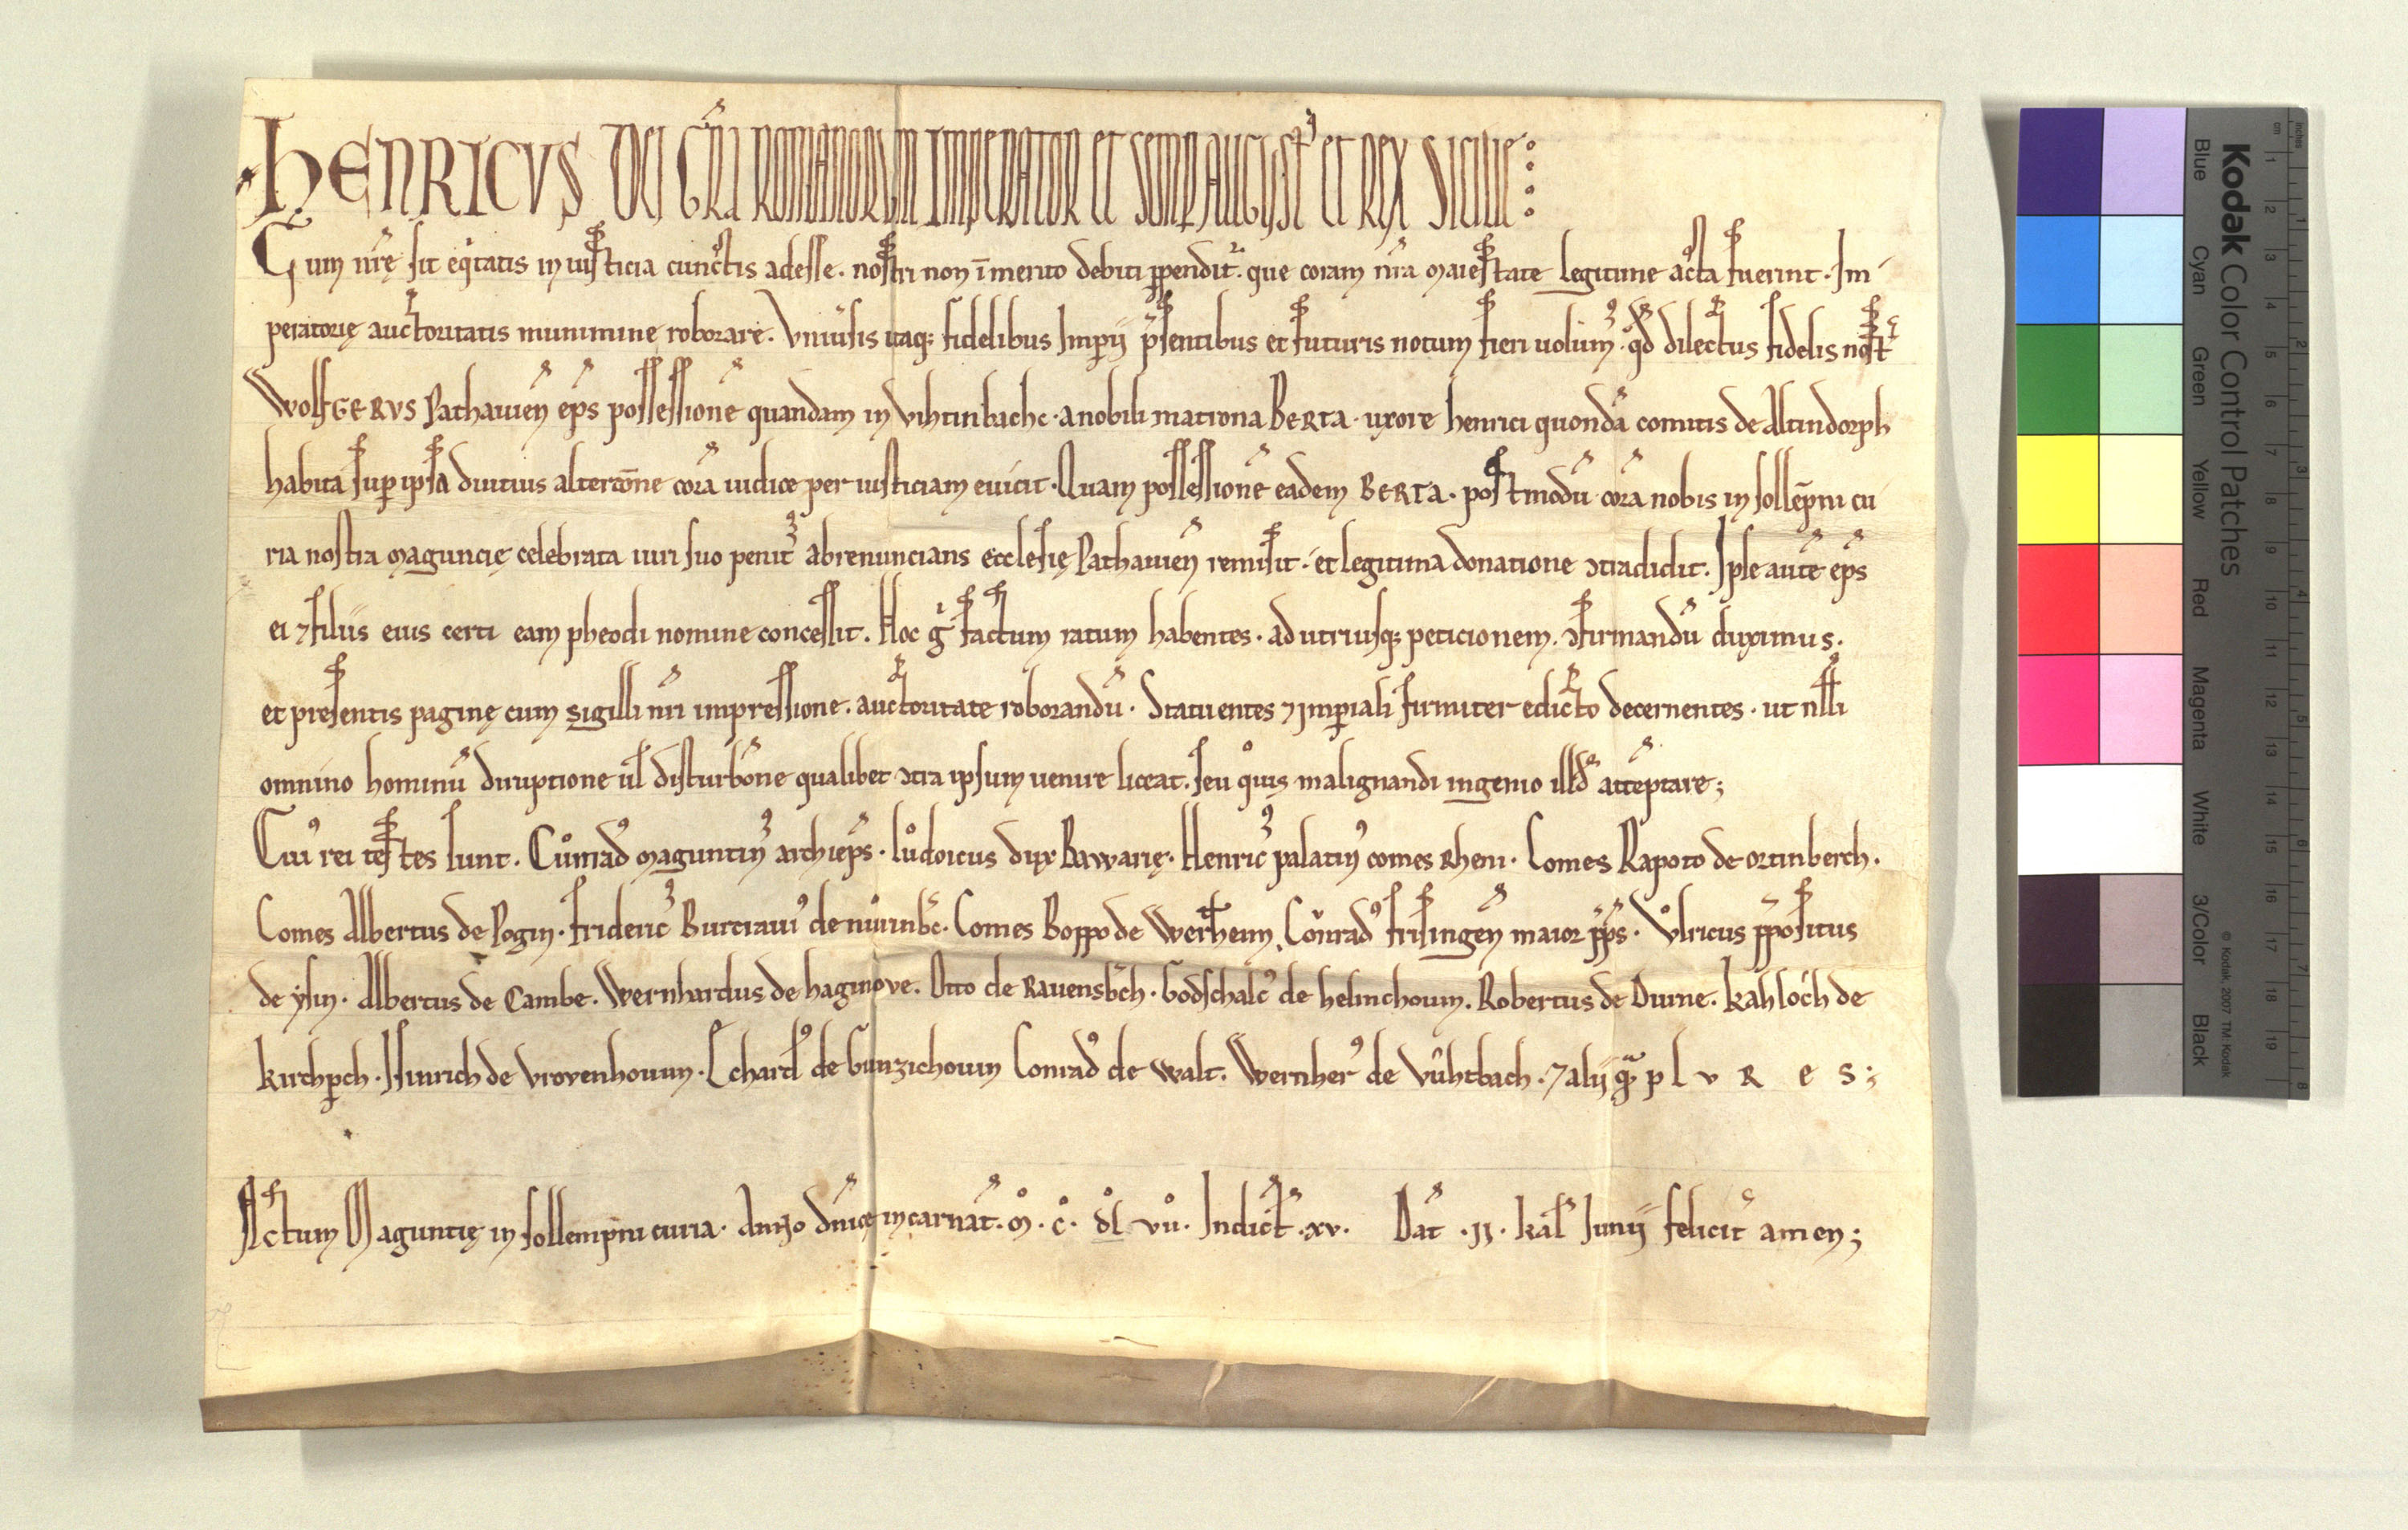 HENRICVS DEI GRA ROMANORVM IMPERATOR ET SEMP AVGVST' ET REX SICILIE
Cum nrę sit eq̇tatis in iusticia cunctis adesse. nostri non īmerito debiti ppendit'. que coram nra maiestate legitime acta fuerint. Im-
peratorię auctoritatis munimine roborare. Vniu'sis itaq; fidelibus Imperij p̄sentibus et futuris notum fieri uolum'. qd dilectus fidelis nost'
WolfGERVS Pathauien ep̄s possessionē quandam in Vihtinbachc. a nobili matrona BERTA. uxore henrici quondā comitis de Altindorph
habita sup ipsa diutius altercōne corā iudice per iusticiam euicit. Quam possessionē eadem BERTA. postmodū corā nobis in sollēpni cu
ria nostra maguncię celebrata iuri suo penit' abrenuncians ecclesię Pathauien remisit. et legitima donatione ꝯtradidit. Ipse autē ep̄s
ei ⁊ filiis eius certi eam pheodi nomine concessit. Hoc g̊ factum ratum habentes. ad utriusq; peticionem. ꝯfirmandū duximus.
et presentis paginę cum sigilli nr̄i impressione. auctoritate roborandū. Statuentes ⁊ imperiali firmiter edicto decernentes. ut nlli
omnino hominū diruptione ul' disturbōne qualibet ꝯtra ipsum uenire liceat. seu quis malignandi ingenio illd' attēptare;
Cui' rei testes sunt. Cůnrad' magunțin' archiep̄s. Lůdoicus dux Bawarię. Henric' palatin' comes Rheni. Comes Rapoto de ortinberch.
Comes Albertus de Pogin. frideric' Burcraui' de nůrnbc. Comes Boppo de Wertheim. Conrad' frisingen maior pp̄s. Vlricus ppositus
de ysin. Albertus de Cambe. Wernhardus de haginove. Otto de Rauensbch. Godschalc' de helinchouin. Robertus de Durne. kahloch de
kirchpch. Hinrich de Vrovenhouin. Echard' de Gunzichouin Conrad' de walt. Wernher' de Vůhtbach. ⁊ alij qm plvRes;
Actum Maguntię in sollempni curia. Anno dn̄icę incarnat̄. m̊. c̊. xc̊ vıı̊. Indict̄. xv. Dat̄. ıı. kal' Junij felicit' amen;
Kodak Color Control Patches
Blue Cyan Green Yellow Red Magenta White 3/Color Black
© Kodak, 2007 TM: Kodak
inches 1 2 3 4 5 6 7 8
cm 1 2 3 4 5 6 7 8 9 10 11 12 13 14 15 16 17 18 19